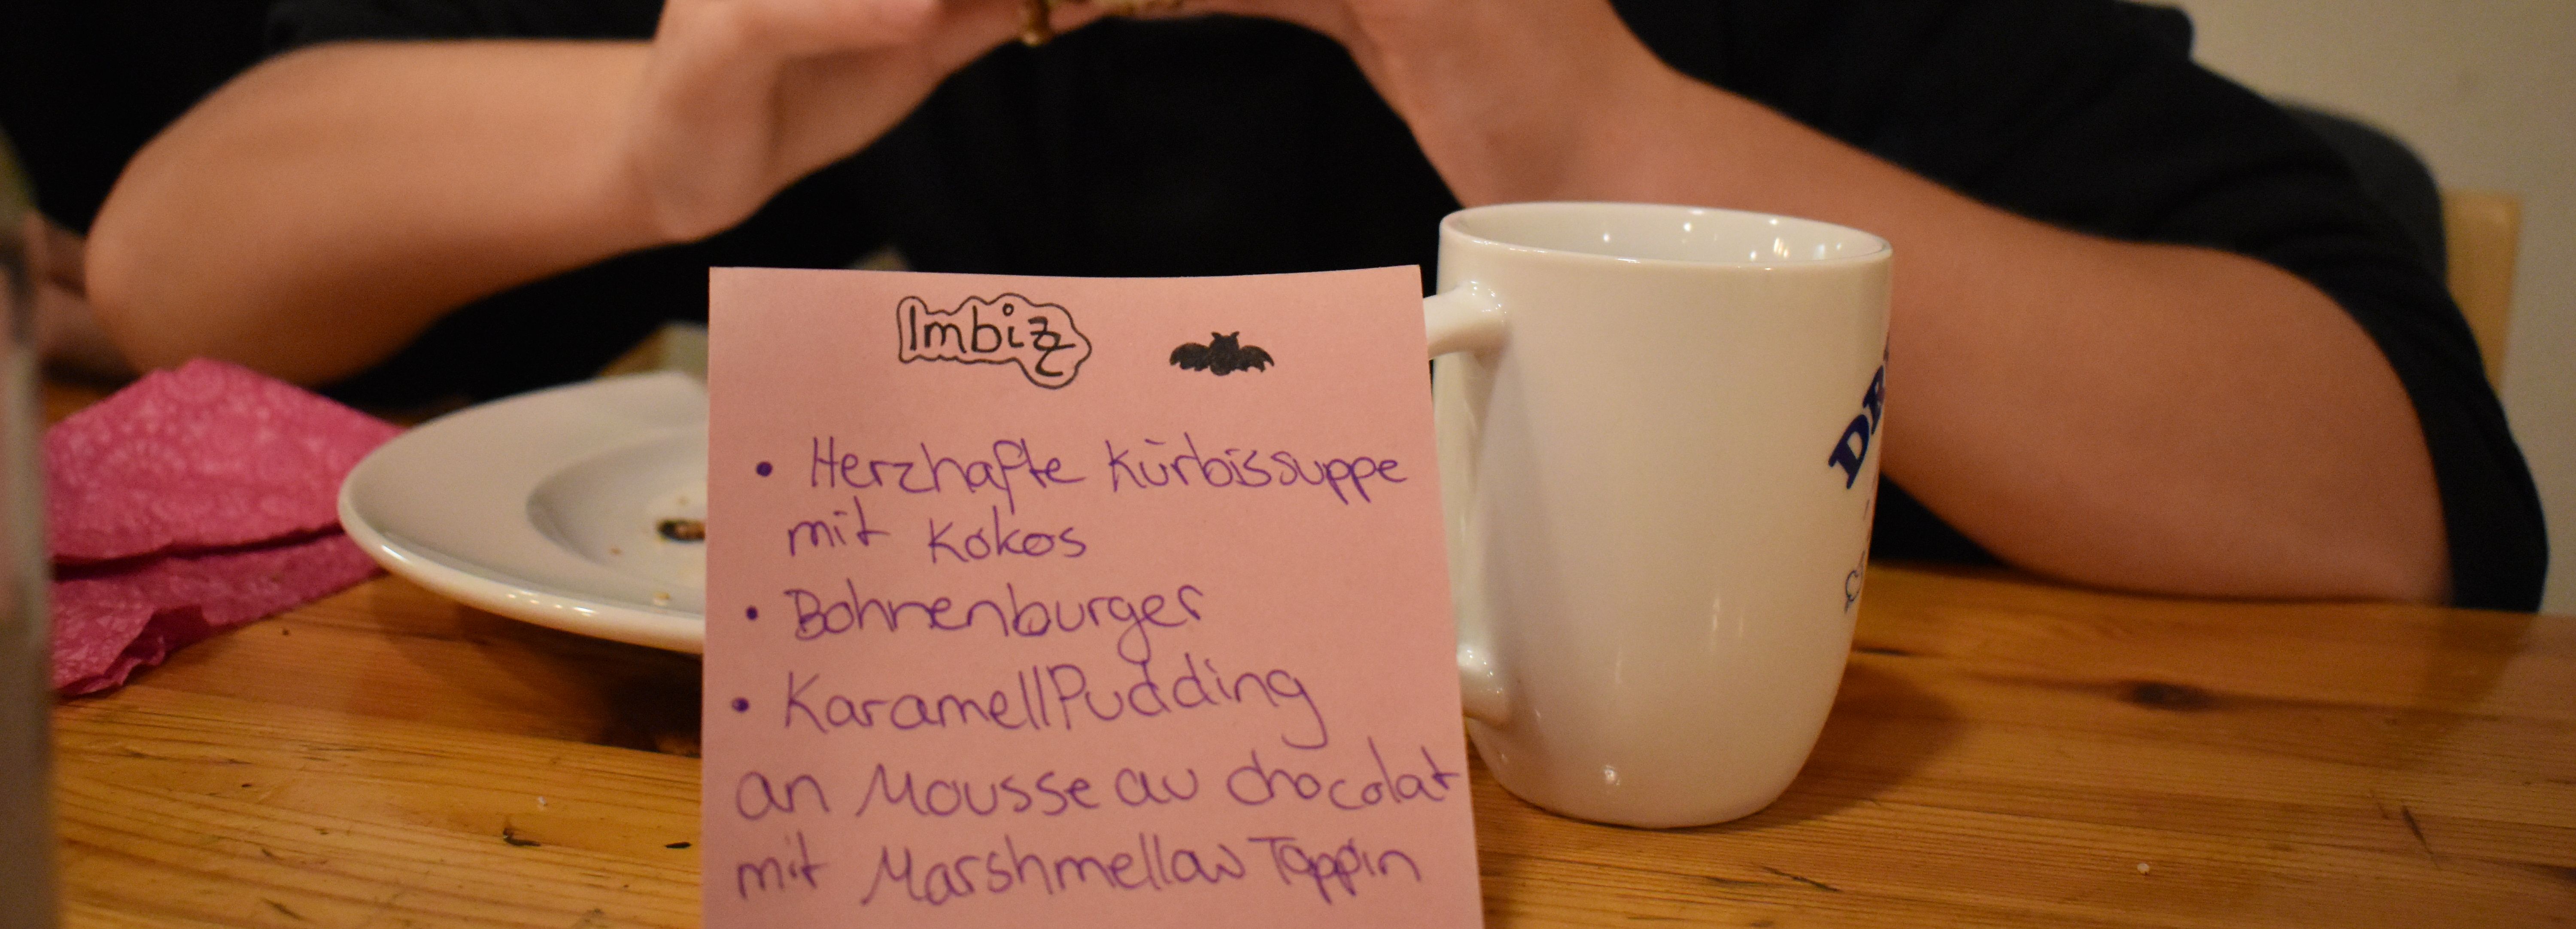 Imbizz
• Herzhafte Kürbissuppe
mit Kokos
• Bohnenburger
• KaramellPudding
an Mousse au chocolat
mit Marshmellow Toppin